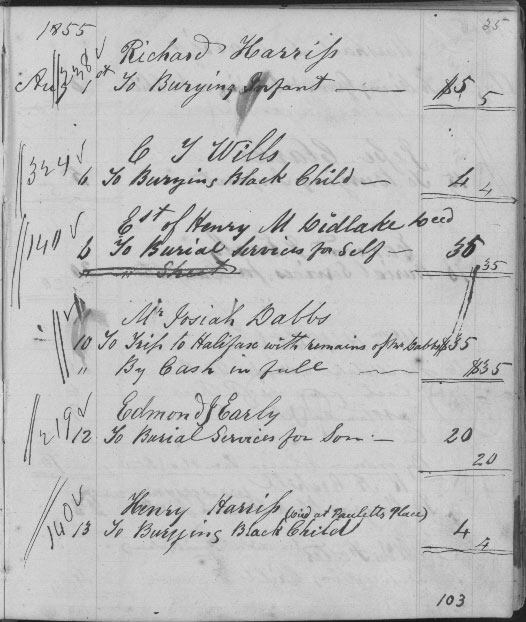 1855 25
338 Richard Harriss
Au 1st To Burying Infant — $5 5
324 C T Wills
6 To Burying Black Child — 4 4
140 Est of Henry M Didlake Deed
6 To Burial Services for Self — 35
" Shest 35
Mr Josiah Dabbs
10 To Trip to Halifax with remains of Mr Dabbs $35
" By Cash in full — $35
219 Edmond J Early
12 To Burial Services for Son — 20
20
140 Henry Harriss (died at Pauletts Place)
13 To Burying Black Child 4
4
103